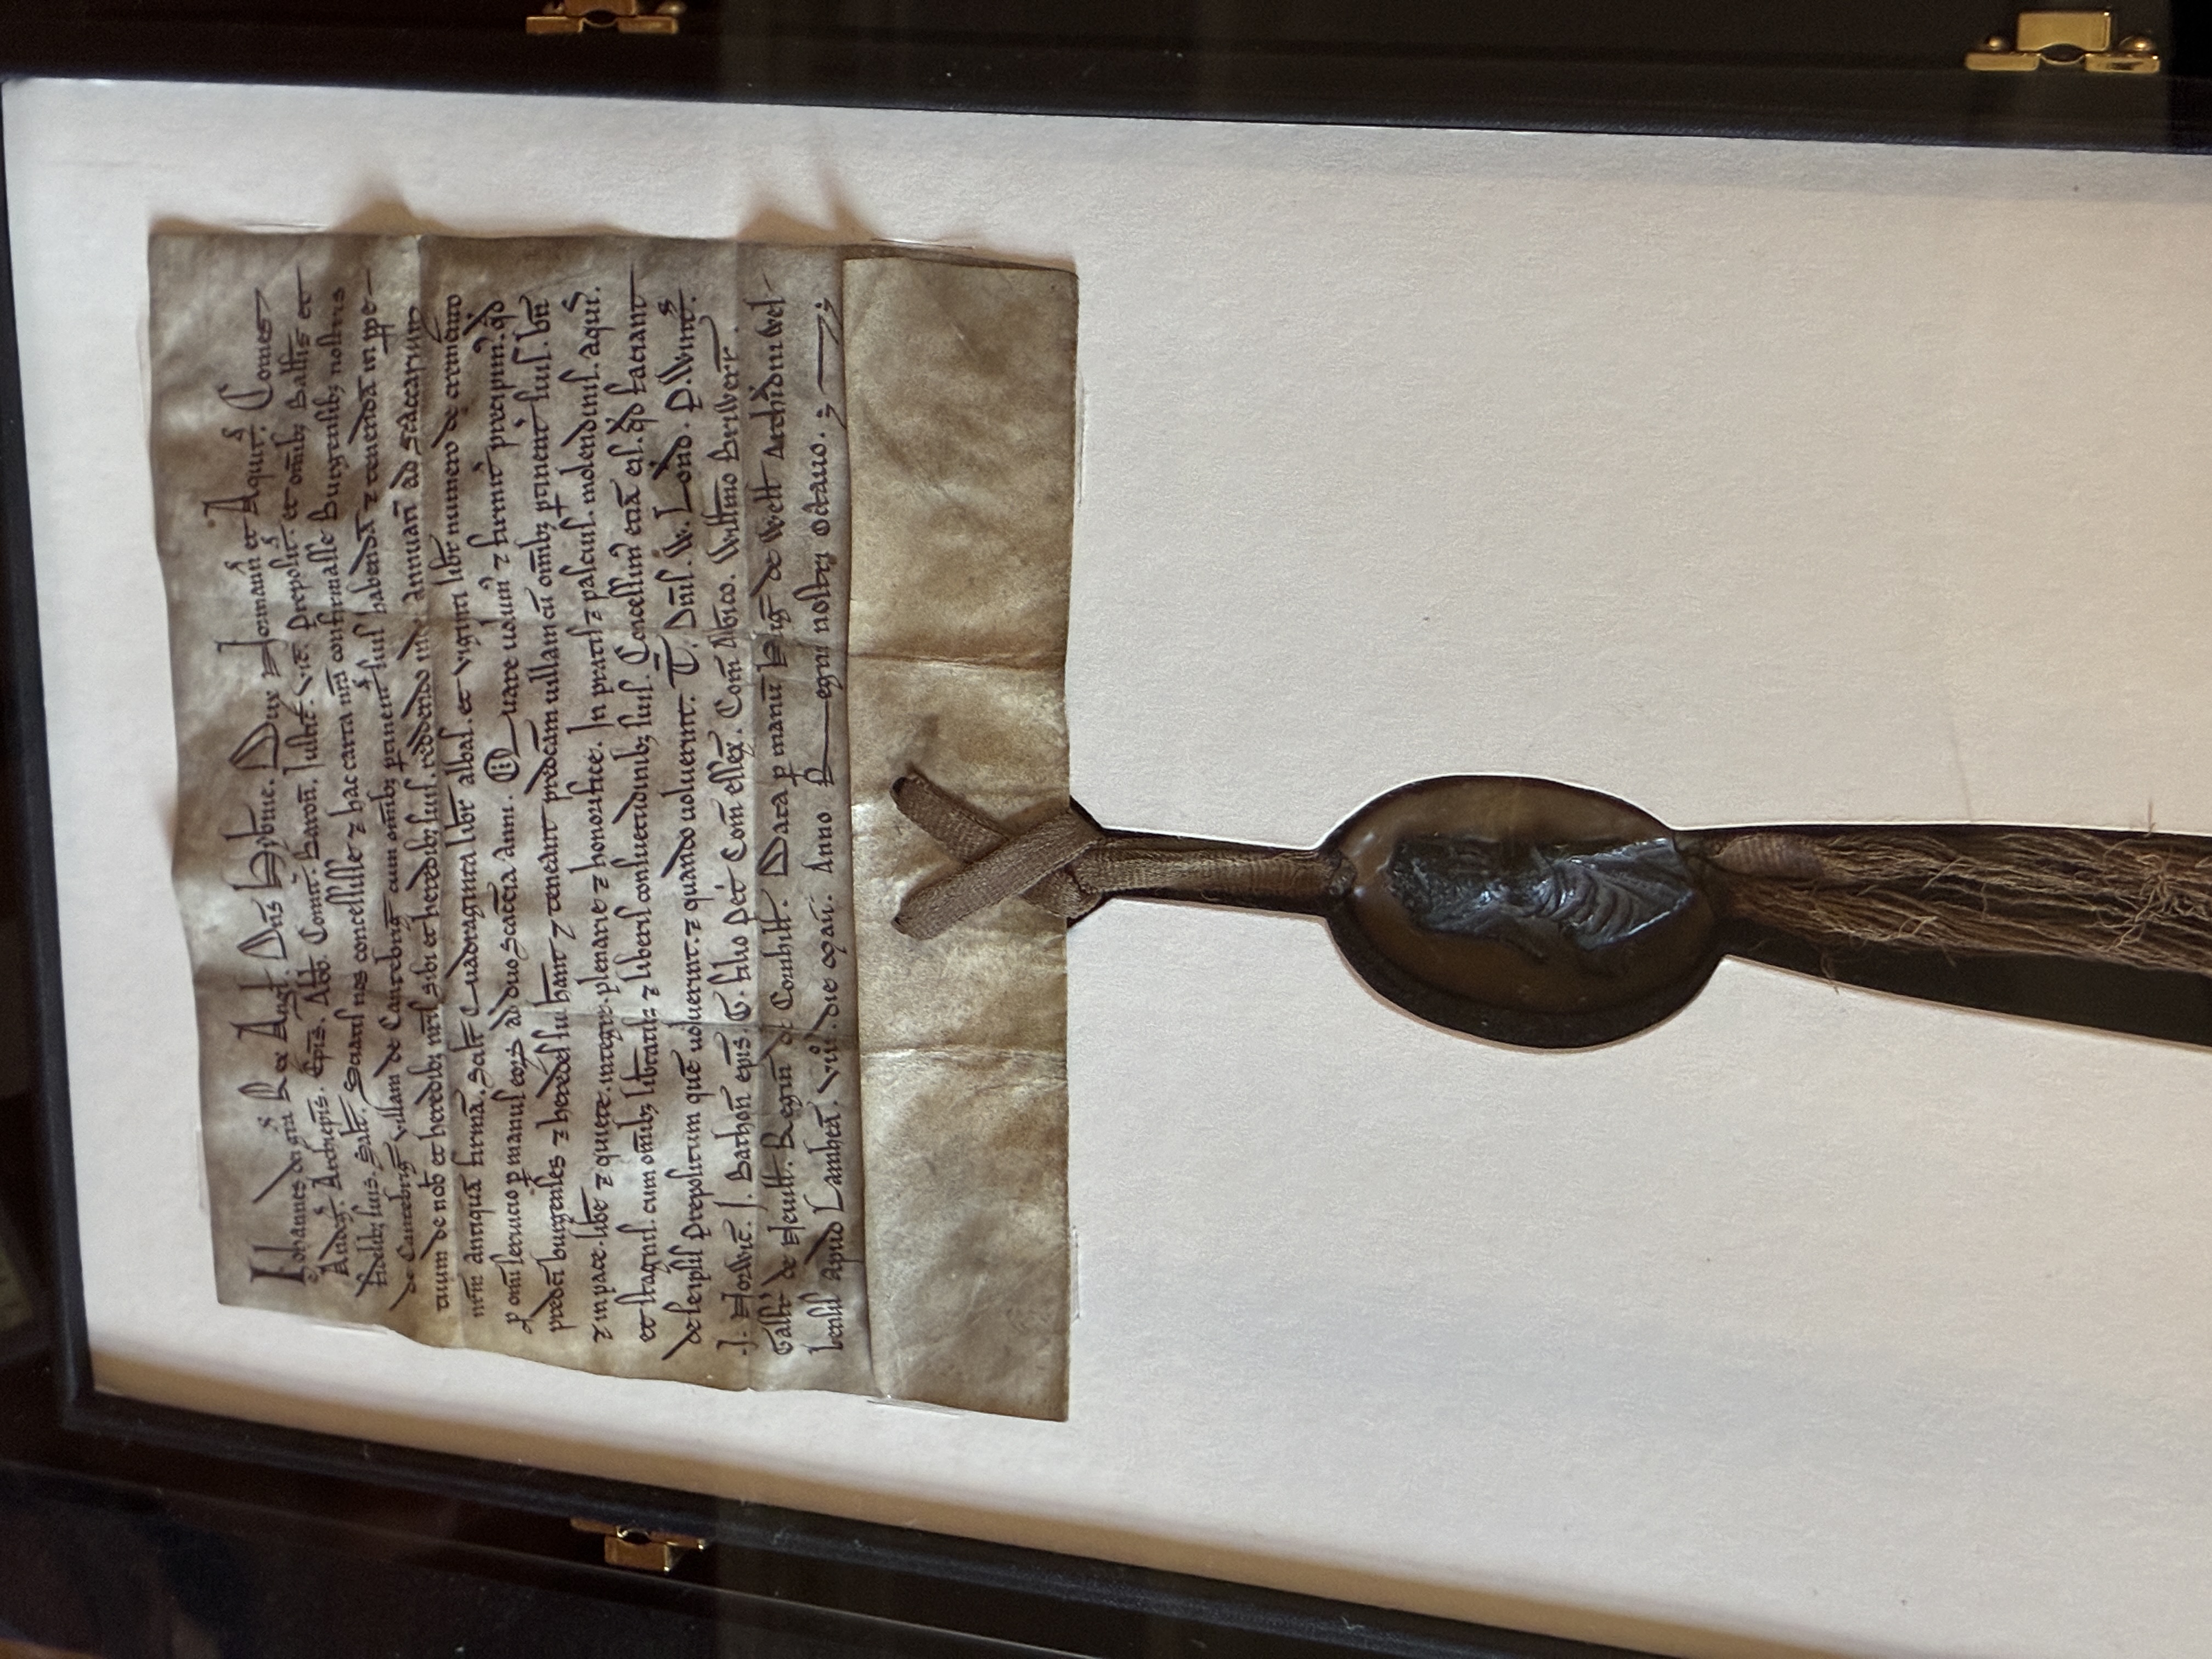 Johannes di gra Rex Angl. Dns Hybnie. Dux Normann et Aquit. Comes
Andeg. Archiepis. Epis. Abb. Comit. Baron. Justic. Vic. Prepositis. et omibz Ballis et
fidelibz suis. Salt. Sciatis nos concessisse ⁊ hac carta nra confirmasse Burgensibz nostris
de Cantebrig villam de Cantebrig cum omibz ptinent suis habenda ⁊ tenenda in ppe-
tuum de nob et heredibz nris sibi et heredibz suis. reddendo in annuatī ad Scaccarium
nrm antiquā firmā. Scilt Quadraginta libr albas. et viginti libr numero de cremento
p omi servicio p manus eoꝝ ad duo Scaccia anni. Quare volum ⁊ firmit precipim. qd
predci burgenses ⁊ heredes sui hant ⁊ teneant predcam villam cū omibz ptinent suis. bn
⁊ in pace. libe ⁊ quiete. integre. plenarie ⁊ honorifice. In pratis ⁊ pascuis. molendinis. aquis.
et stagnis. cum omibz libtatibz ⁊ liberis consuetudinibz suis. Concessim etiā eis. qd faciant
de seipsis Prepositum quē voluerint. ⁊ quando voluerint. T. Dnis. W. Lond. P. Wint.
J. Norwic. J. Bathon epis. G. filio Petri Com Essex. Com Albrico. Willmo Briwerr.
Galfr de Nevill. Regin de Cornhill. Data p manū Hug de Well Archidiac Wel-
lensis apud Lamhea. viii. die Maii. Anno Regni nostri Octavo.